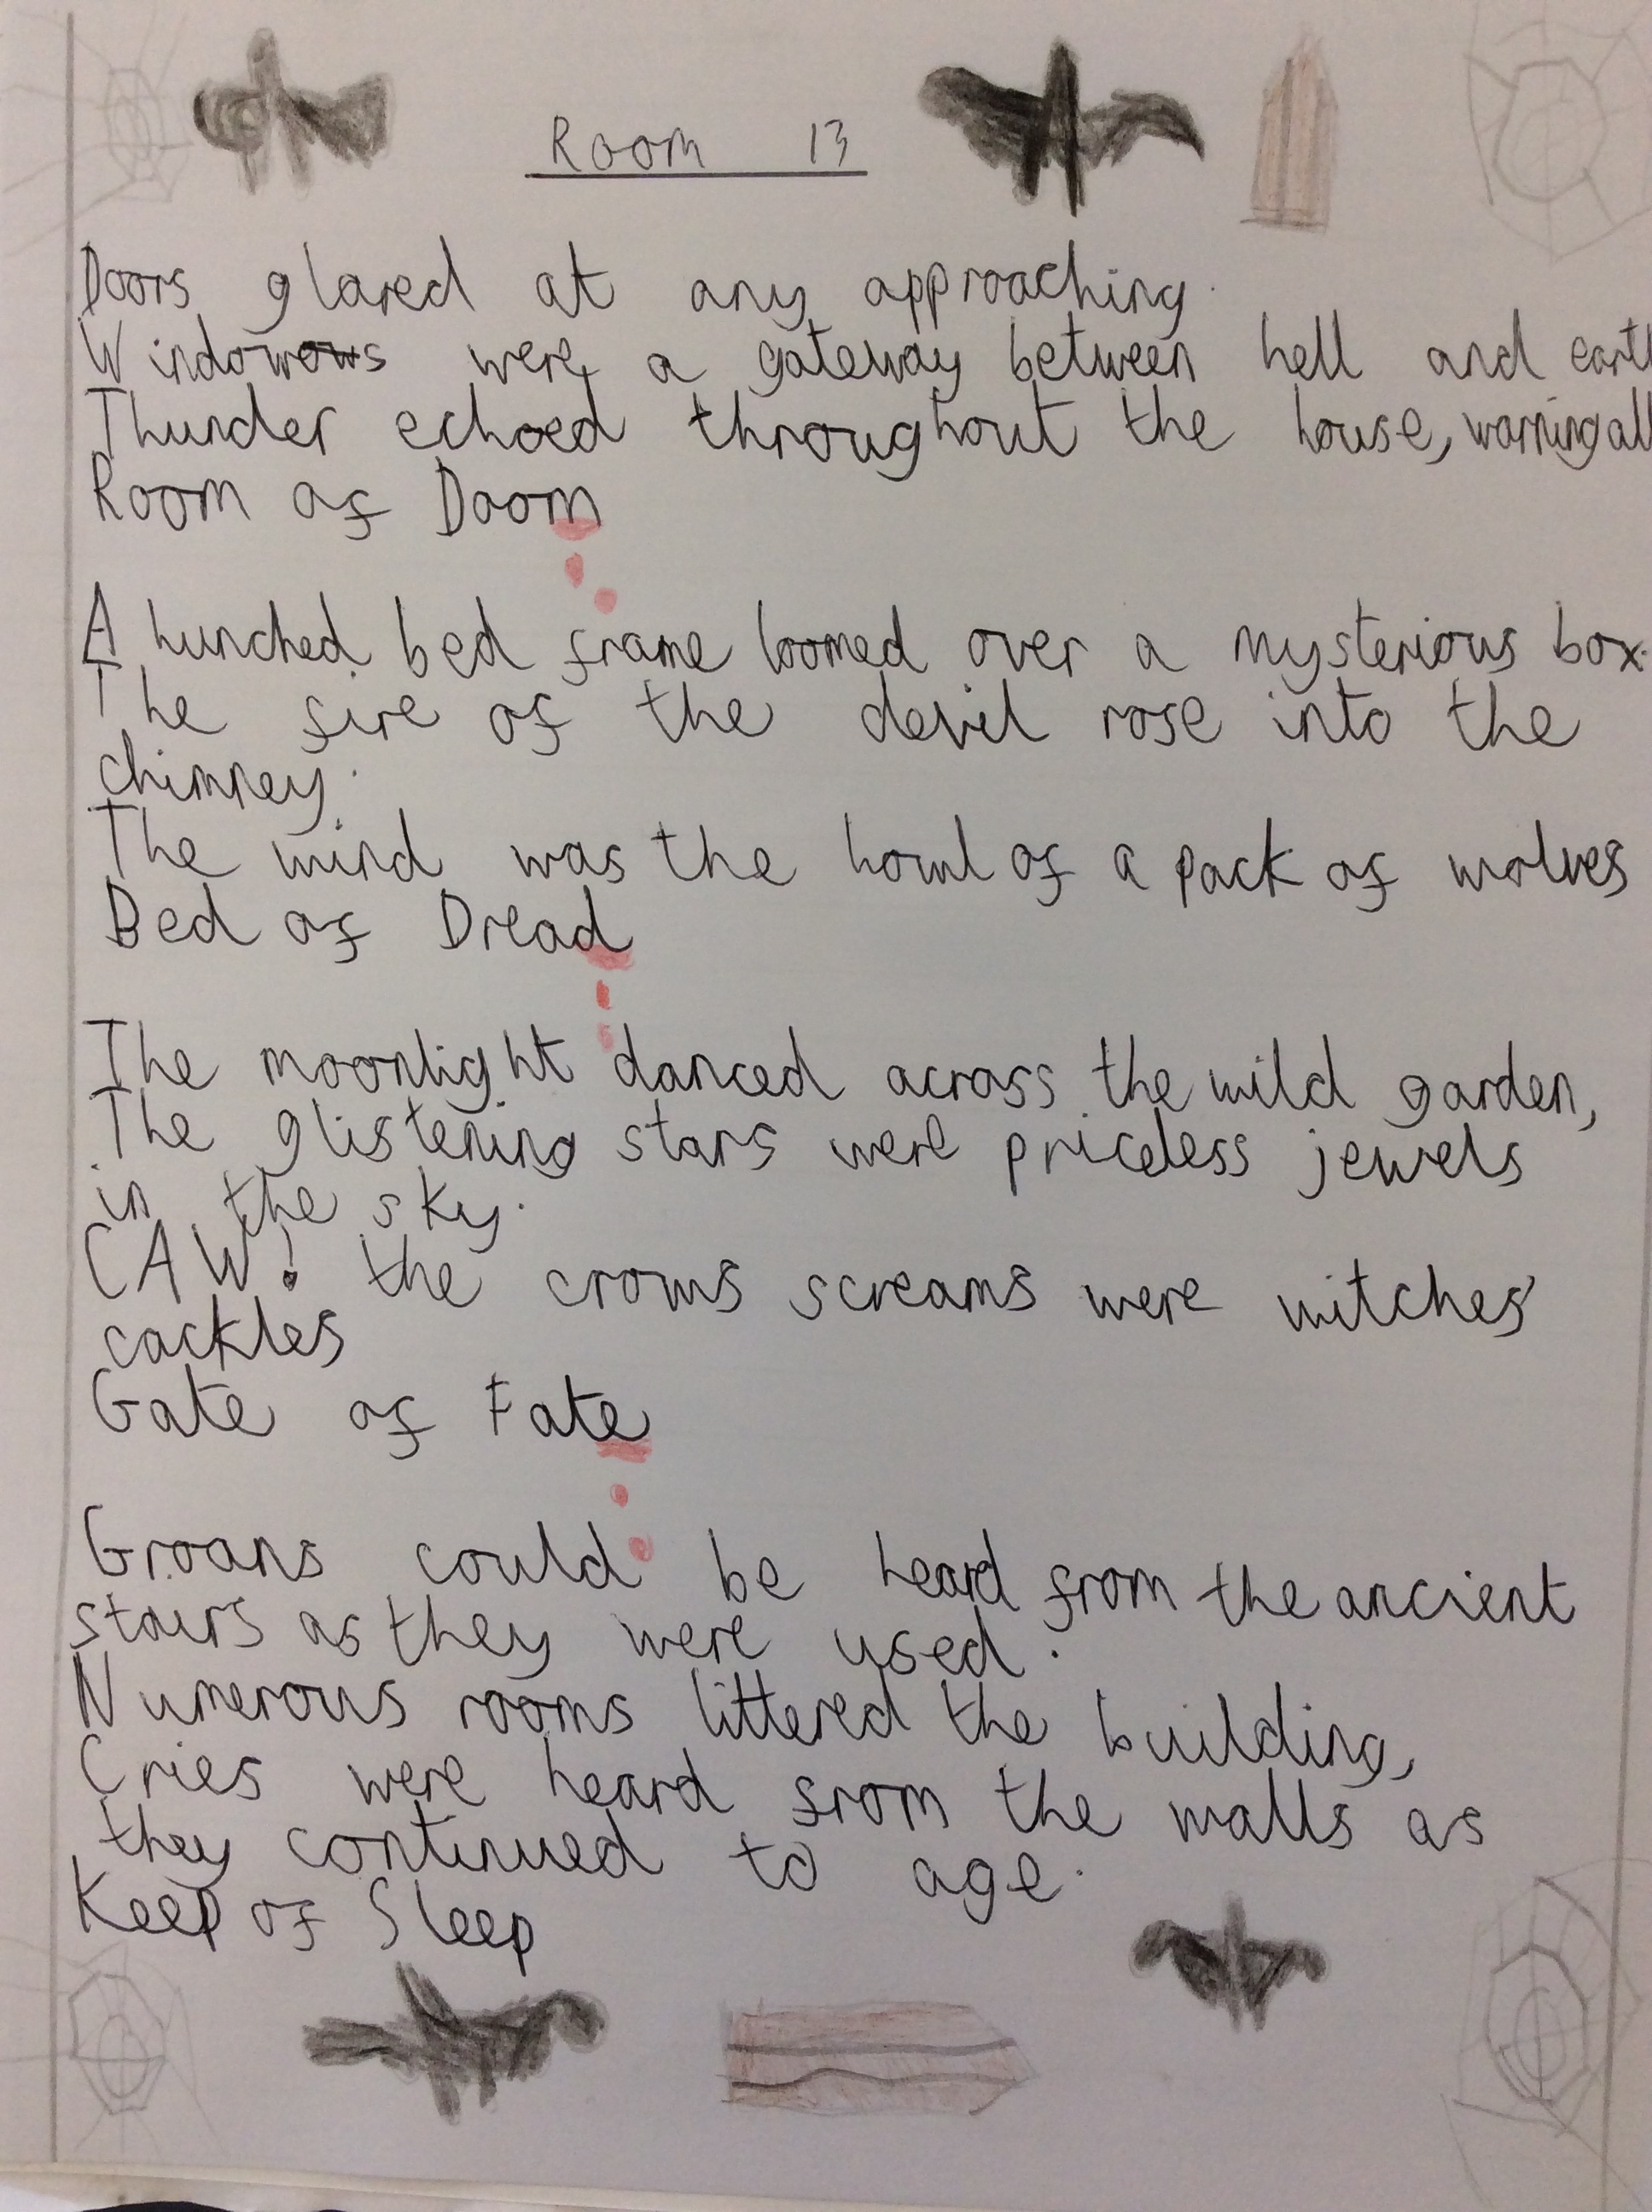 Room 13
Doors glared at any approaching.
Windowows were a gateway between hell and earth
Thunder echoed throughout the house, warning all
Room of Doom
A hunched bed frame loomed over a mysterious box.
The fire of the devil rose into the
chimney.
The wind was the howl of a pack of wolves
Bed of Dread
The moonlight danced across the wild garden,
The glistening stars were priceless jewels
in the sky.
CAW! the crows screams were witches'
cackles
Gate of Fate
Groans could be heard from the ancient
stairs as they were used.
Numerous rooms littered the building,
Cries were heard from the walls as
they continued to age.
Keep of Sleep